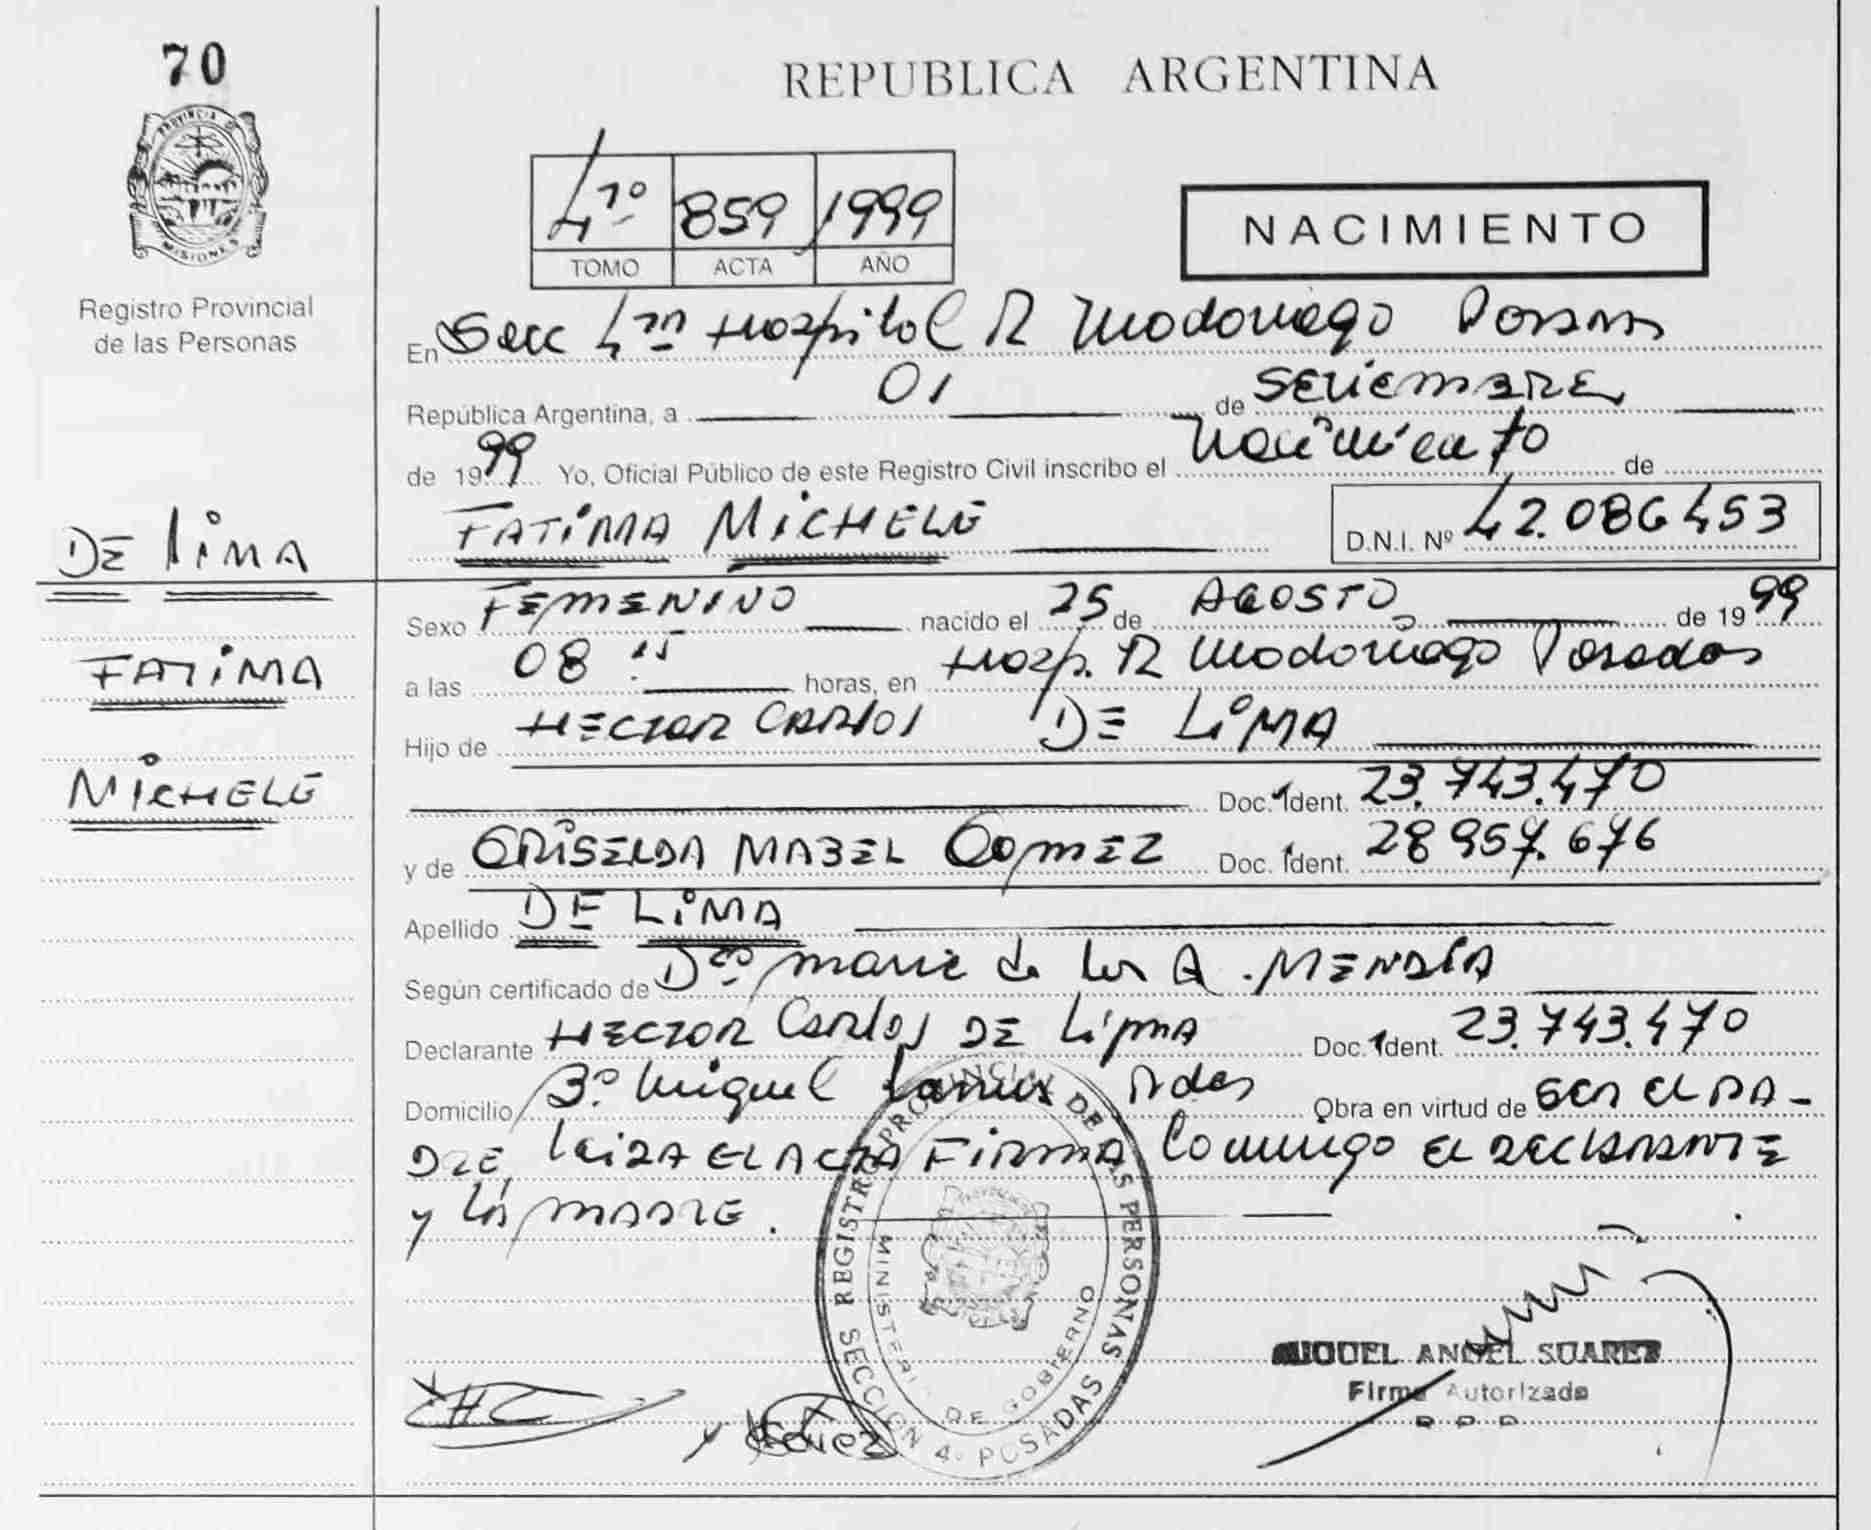 70
REPUBLICA ARGENTINA
PROVINCIA DE MISIONES
Registro Provincial
de las Personas
4º 859 1999
TOMO ACTA AÑO
NACIMIENTO
En Secc 4ta Hospital R Madariaga Posadas
República Argentina, a 01 de SETIEMBRE
de 1999 Yo, Oficial Público de este Registro Civil inscribo el Nacimiento de
FATIMA MICHELE D.N.I. Nº 42.086453
DE LIMA
FATIMA
MICHELE
Sexo FEMENINO nacido el 25 de AGOSTO de 1999
a las 08 15 horas, en Hosp. R Madariaga Posadas
Hijo de HECTOR CARLOS DE LIMA
Doc. Ident. 23.743.470
y de GRISELDA MABEL GOMEZ Doc. Ident. 28957.676
Apellido DE LIMA
Según certificado de Dra maria de los A. MENDIA
Declarante HECTOR Carlos DE Lima Doc. Ident. 23.743.470
Domicilio Bº Miguel Lanus Pdas Obra en virtud de SER EL PA-
DRE, Leida EL ACTA FIRMA Conmigo EL DECLARANTE
y LA MADRE.
REGISTRO PROVINCIAL DE LAS PERSONAS
MINISTERIO DE GOBIERNO
SECCION 4º POSADAS
MIGUEL ANGEL SUAREZ
Firma Autorizada